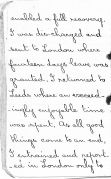 enabled a full recovery.
I was discharged and
sent to London where
fourteen days leave was
granted. I returned to
Leeds where an exceed-
ingly enjoyable time
was spent. As all good
things come to an end,
I entrained and report-
ed in London only to